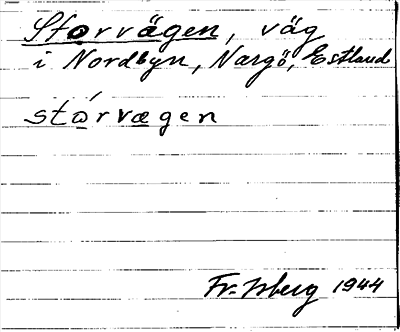 Storvägen, väg
i Nordbyn, Nargö, Estland
stórvægen
Fr. Isberg 1944